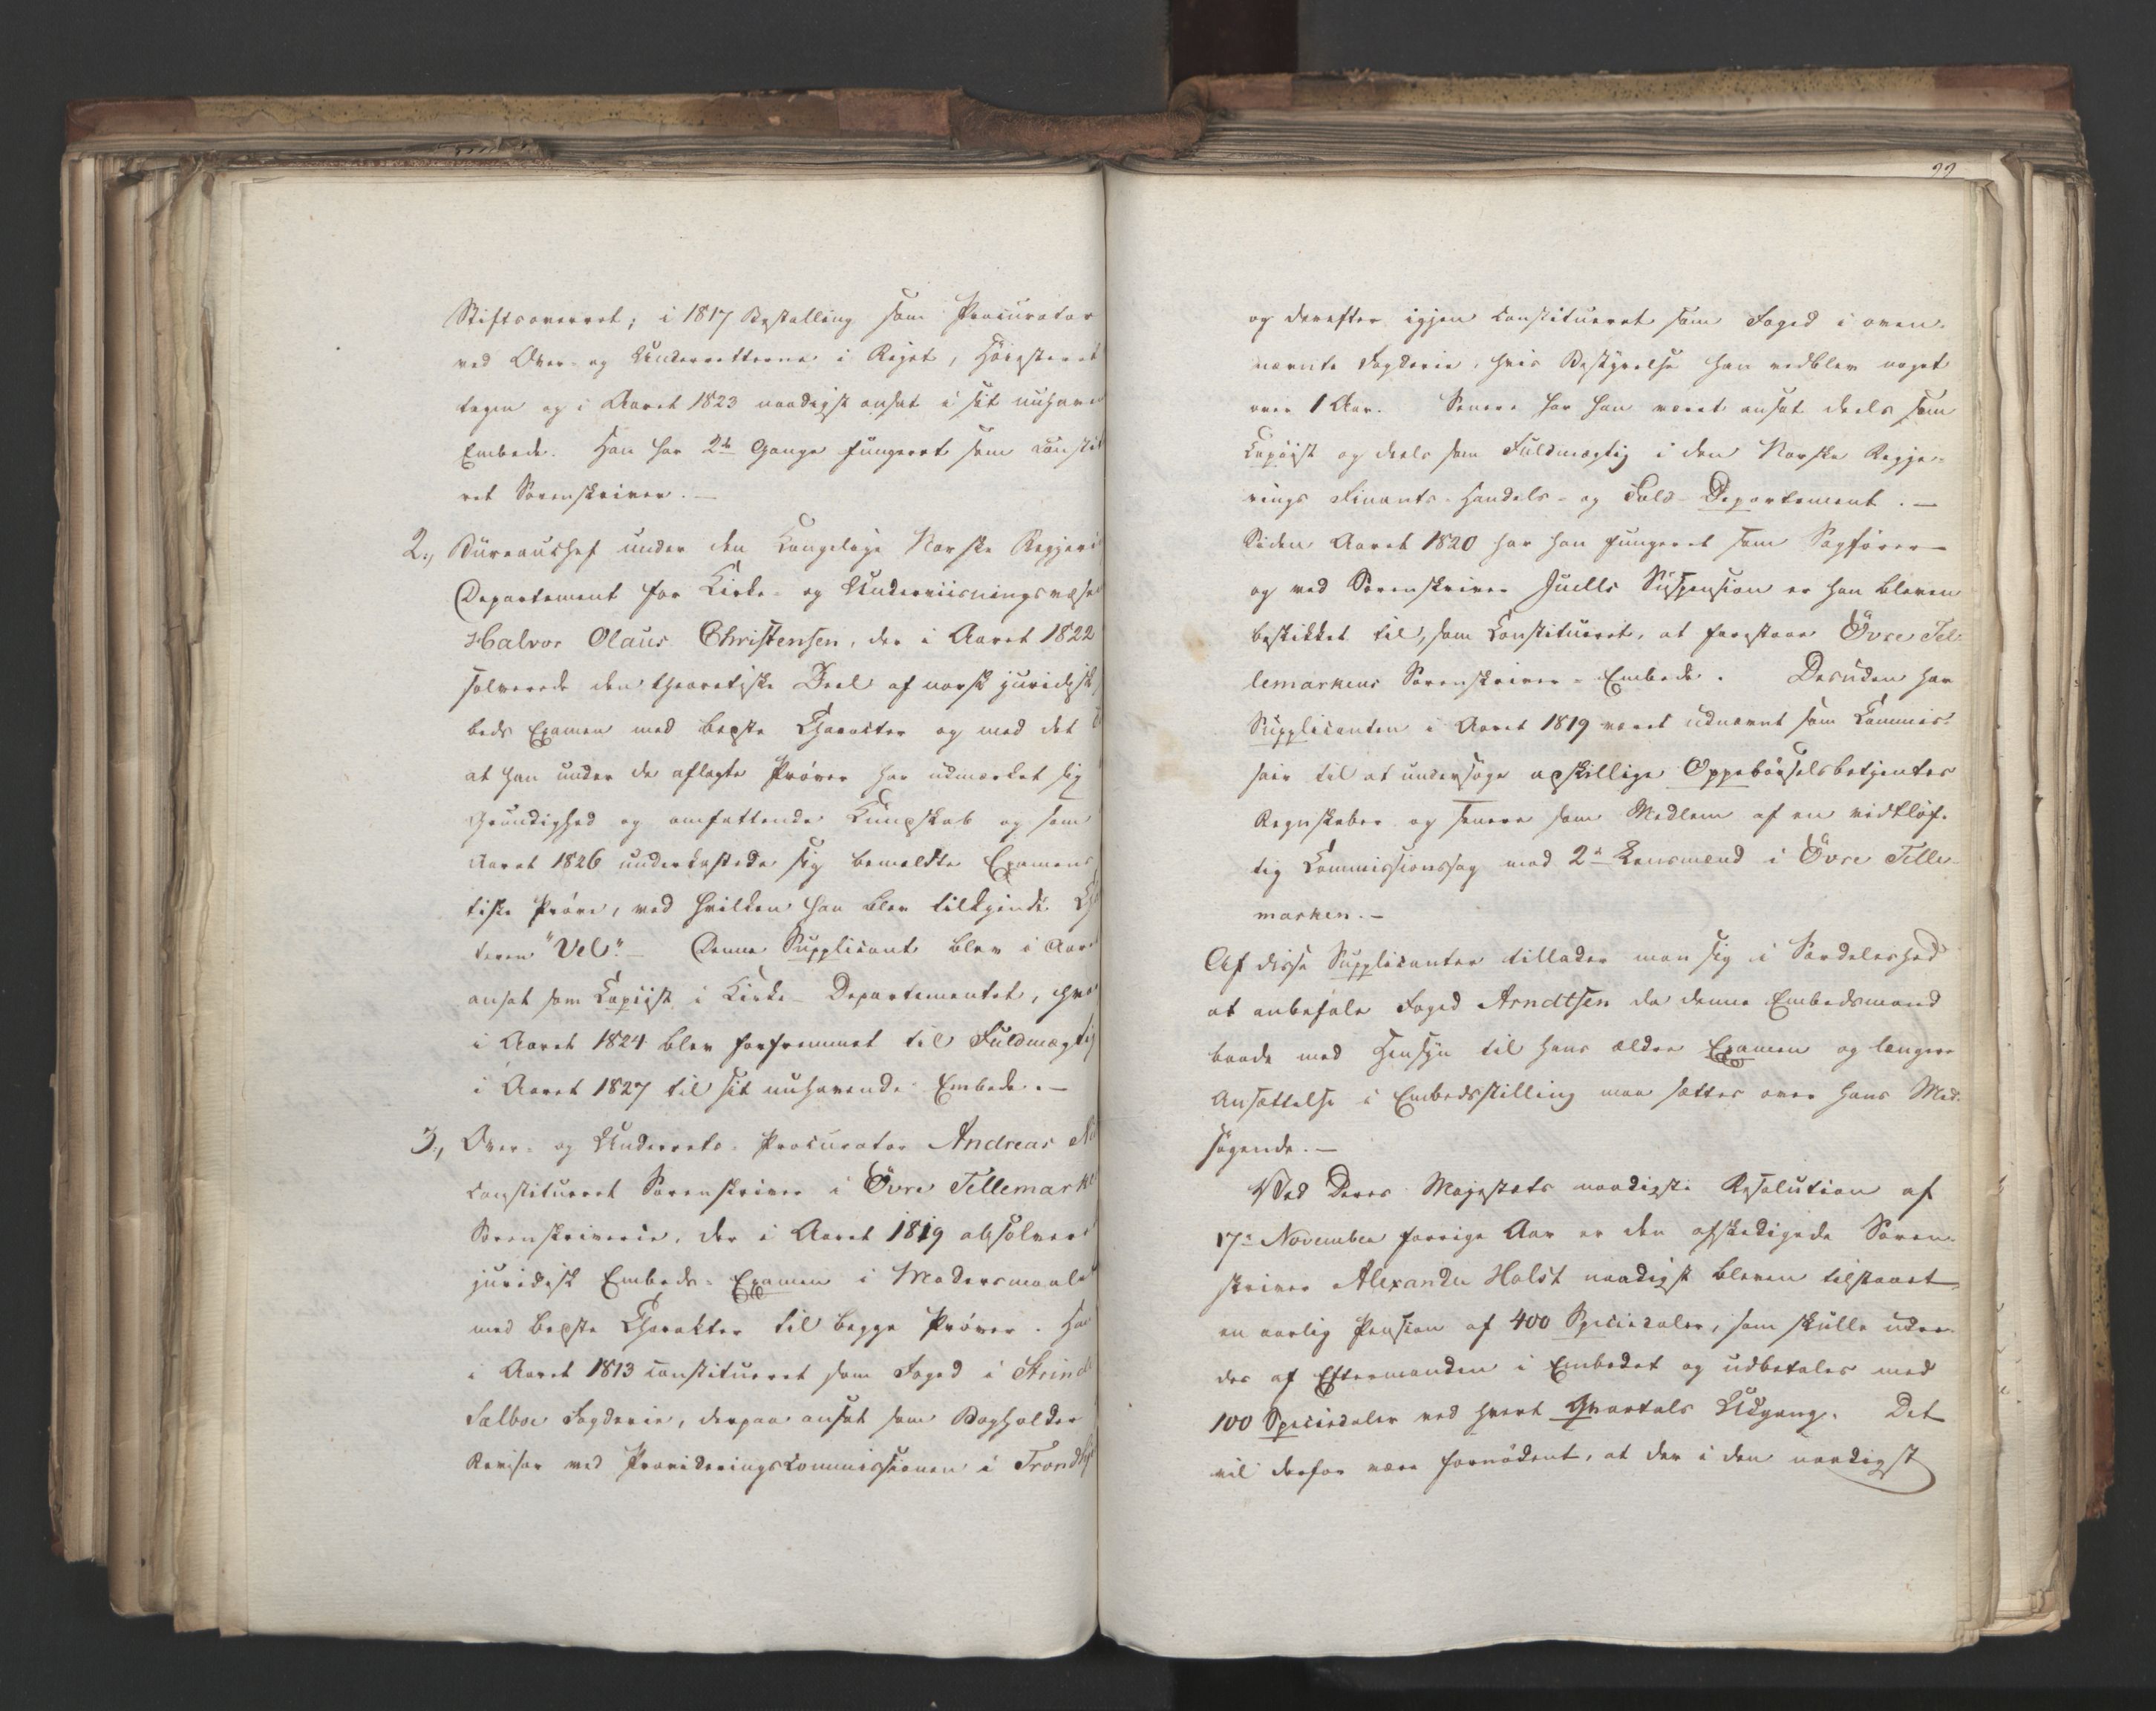 Stiftsoverret; i 1817 Bestalling som Procurator
ved Over- og Underretterne i Riget, Höiesteret
tagen og i Aaret 1823 naadigst ansat i sit nuhave
Embede. Han har 2de Gange fungeret som constit
ret Sorenskriver. —
2., Büreauchef under den Kongelige Norske Regjeri
Departement for Kirke- og Underviisningsvæse
Halvor Olaus Christensen, der i Aaret 1822
solverede den theoretiske Deel af norsk juridisk
beds Examen med bedste Charakter og med det
at han under de aflagte Prøver har udmærket sig
Grundighed og omfattende Kundskab og som
Aaret 1826 underkastede sig bemeldte Examens
tiske Prøve, ved hvilken han blev tilkjendt Ch
teren "Vel". — Denne Supplicant blev i Aar
ansat som Copiist i Kirke-Departementet, hvo
i Aaret 1824 blev forfremmet til Fuldmægtig
i Aaret 1827 til sit nuhavende Embede. —
3., Over- og Underrets-Procurator Andreas
constitueret Sorenskriver i Övre Tellemark
Sorenskriverie, der i Aaret 1819 absolvere
juridisk Embeds-Examen i Modersmaalet
med bedste Charakter til begge Prøver. Han
i Aaret 1813 constitueret som Foged i Strinde
Sælboe Fogderie, derpaa ansat som Bogholder
Revisor ved Provideringscommissionen i Trondhj
22
og derefter igjen constitueret som Foged i oven-
nævnte Fogderie, hvis Bestyrelse han vedblev noget
over 1 Aar. Senere har han været ansat deels som
Copiist og deels som Fuldmægtig i den Norske Regje-
rings Finants- Handels- og Told-Departement. —
Siden Aaret 1820 har han fungeret som Sagfører —
og ved Sorenskriver Juells Suspension er han bleven
beskikket til, som Constitueret, at forestaae Övre Tel-
lemarkens Sorenskriver-Embede. Desuden har
Supplicanten i Aaret 1819 været udnævnt som Commis-
sair til at undersøge adskillige Oppebörselsbetjentes
Regnskaber og senere som Medlem af en vidtløf-
tig Commissionssag mod 2de Lensmænd i Övre Telle-
marken. —
Af disse Supplicanter tillader man sig i Særdeleshed
at anbefale Foged Arndtsen da denne Embedsmand
baade med Hensyn til hans ældre Examen og længere
Ansættelse i Embedsstilling maa sættes over hans Med-
søgende. —
Ved Deres Majestæts naadigste Resolution af
17de November forrige Aar er den afskedigede Soren-
skriver Alexander Holst naadigst bleven tilstaaet
en aarlig Pension af 400 Speciedaler, som skulle udre-
des af Eftermanden i Embedet og udbetales med
100 Speciedaler ved hvert Qvartals Udgang. Det
vil derfor være fornødent, at der i den naadigst